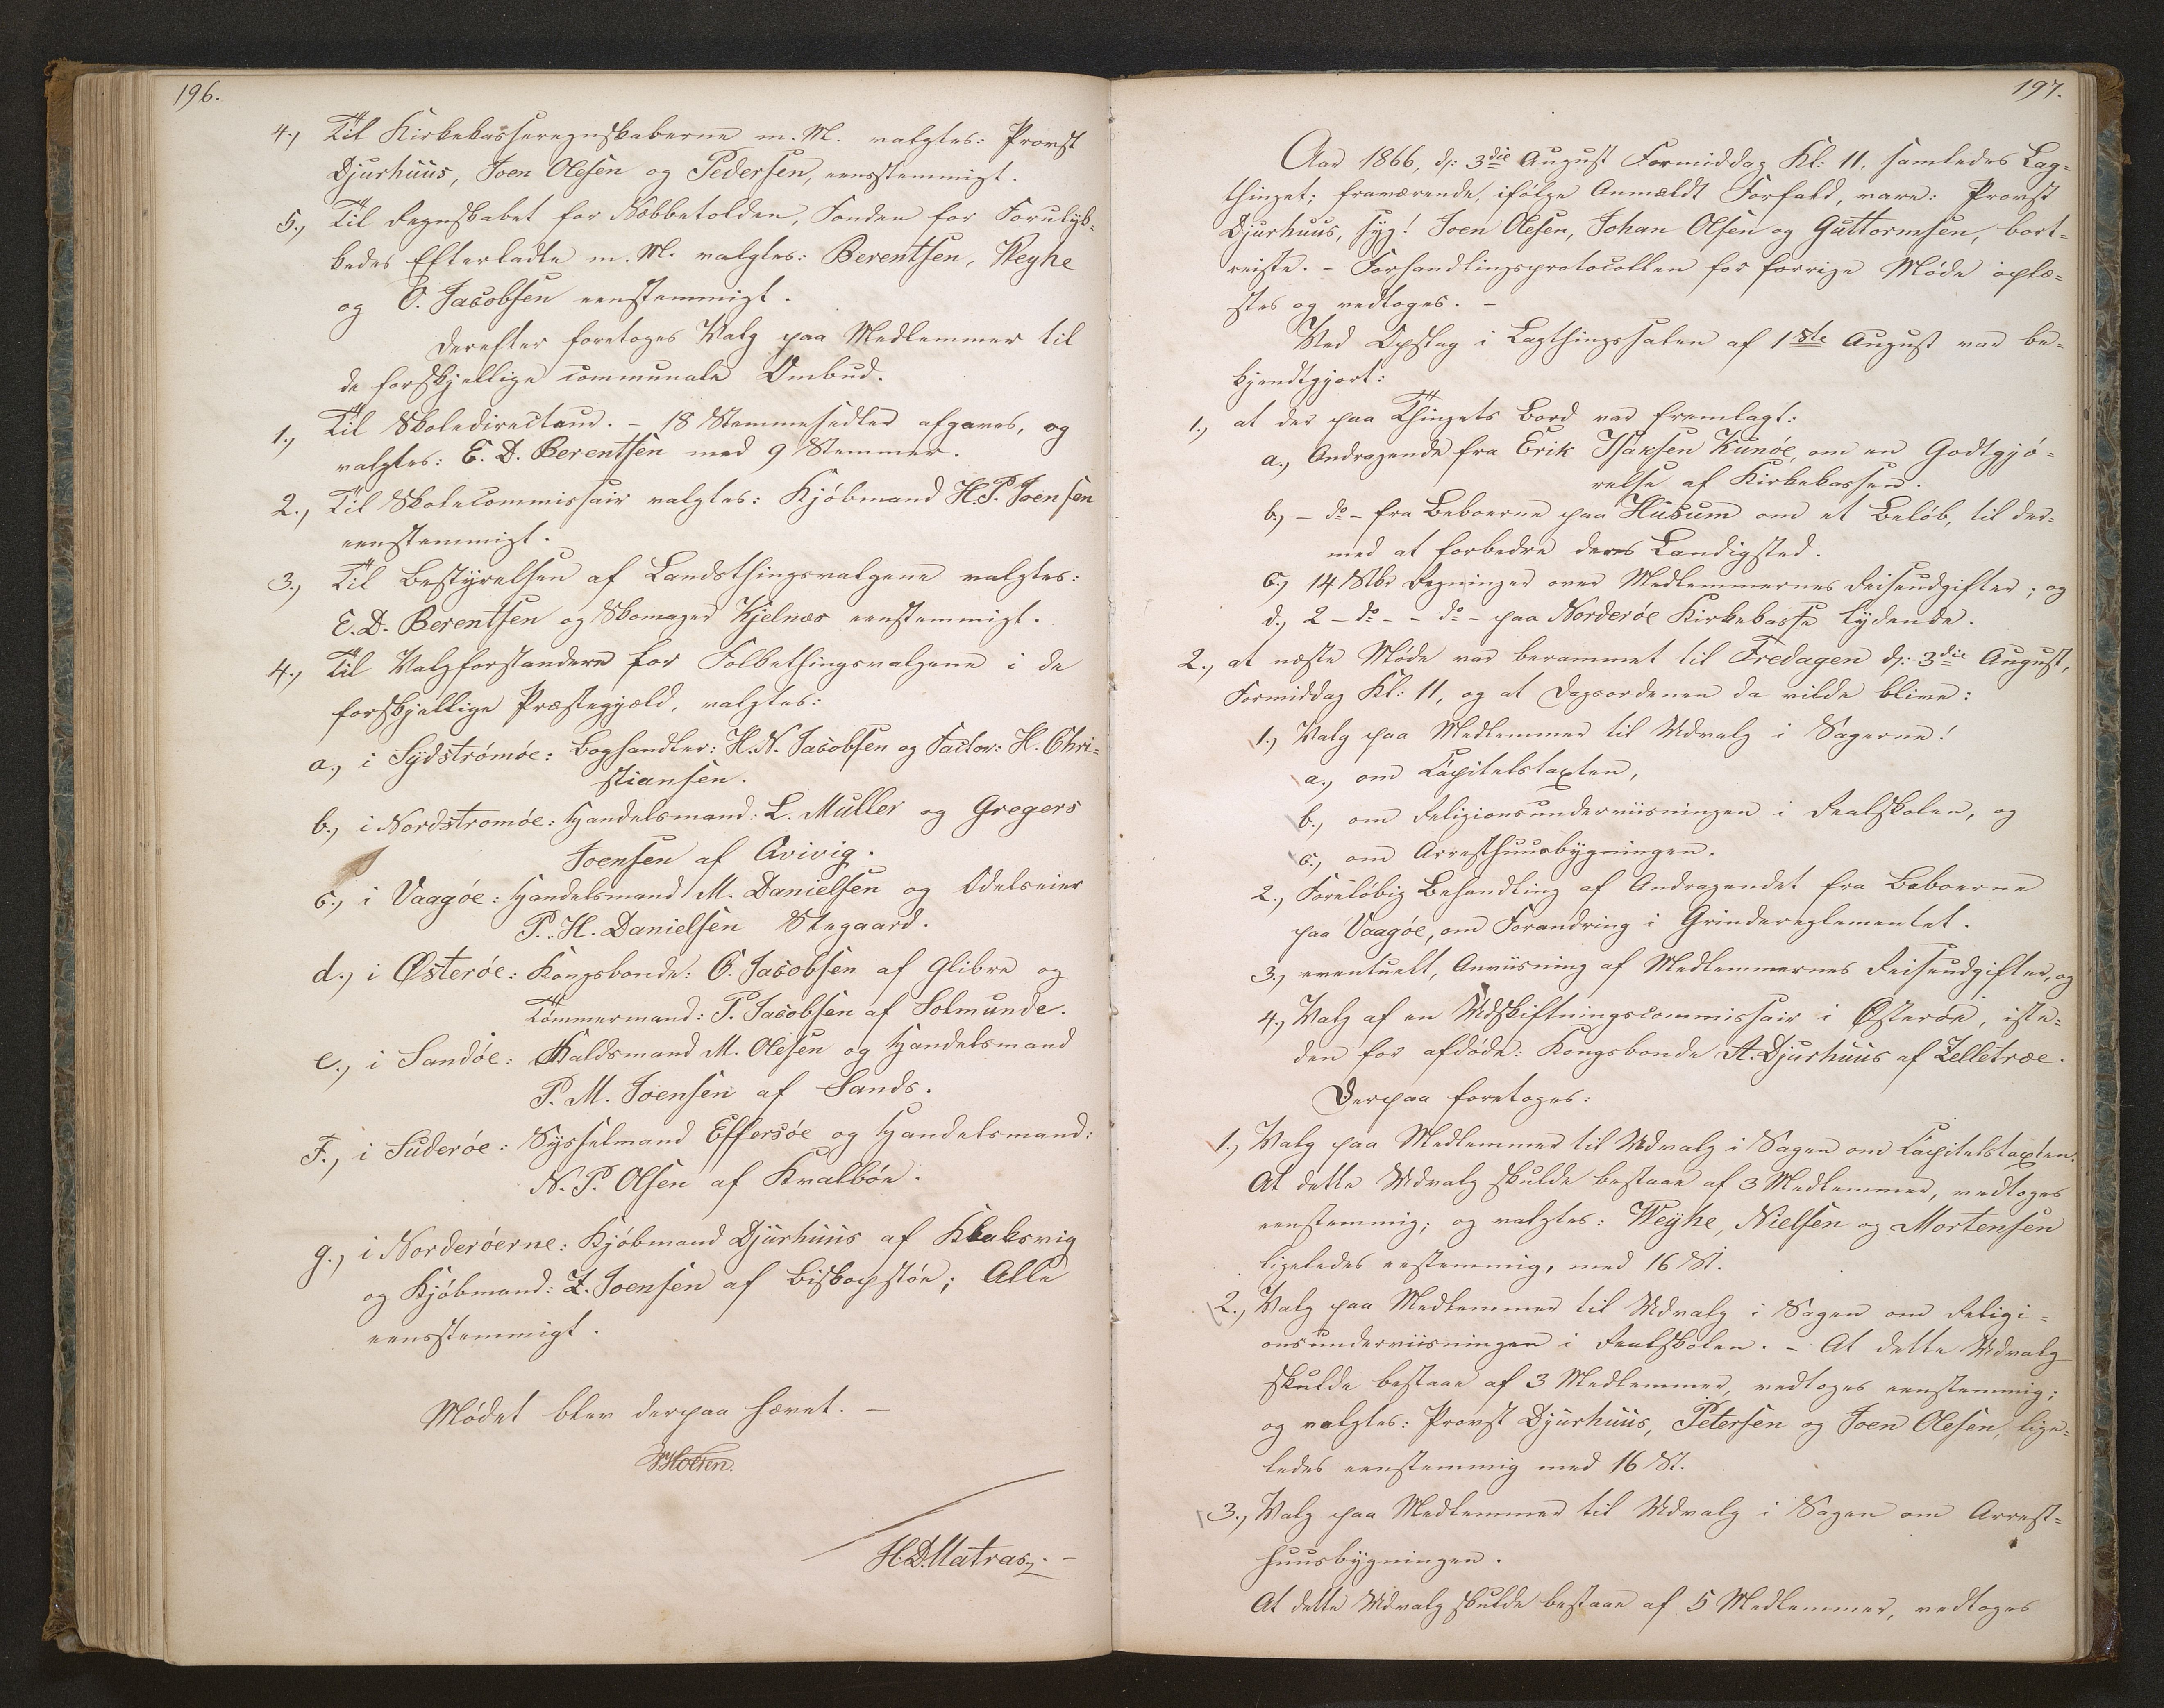 196.
4., Til Kirkekasseregnskaberne m. M. valgtes: Provst
Djurhuus, Joen Olesen og Pedersen, eensstemmigt.
5., Til Regnskabet for Næbbetolden, Fonden for Forulyk-
kedes Efterladte m. M. valgtes: Berentsen, Weyhe
og O. Jacobsen eenstemmigt.
Derefter foretoges Valg paa Medlemmer til
de forskjellige communale Ombud.
1., Til Skoledirecteur. – 18 Stemmesedler afgaves, og
valgtes: E. D. Berentsen med 9 Stemmer.
2., Til Skolecommissair valgtes: Kjøbmand H. P. Joensen
eenstemmigt.
3., Til Bestyrelsen af Landsthingsvalgene valgtes:
E. D. Berentsen og Skomager Kjelnæs eenstemmigt.
4., Til Valgforstandere for Folkethingsvalgene i de
forskjellige Præstegjæld, valgtes:
a., i Sydstrømøe: Boghandler: H. N. Jacobsen og Factor: H. Chri-
stiansen.
b., i Nordstromøe: Handelsmand: L. Müller og Gregers
Joensen af Qvivig.
c., i Vaagøe: Handelsmand M. Danielsen og Odelseier
P. H. Danielsen Stegaard.
d., i Østerøe: Kongsbonde: O. Jacobsen af Glibre og
Tømmermand: P. Jacobsen af Solmunde.
e., i Sandøe: Haldsmand M. Olesen og Handelsmand
P. M. Joensen af Sands.
F., i Suderøe: Sysselmand Effersøe og Handelsmand:
N. P. Olsen af Kvalbøe.
g., i Norderøerne: Kjøbmand Djurhuus af Klaksvig
og Kjøbmand: Z. Joensen af Biskopstøe; Alle
eensstemmigt.
Mødet blev derpaa hævet. –
H. D. Matras
197.
Aar 1866, d: 3die August Formiddag Kl: 11. samledes Lag-
thinget; fraværende, ifølge Anmeldt Forfald, vare: Provst
Djurhuus, syg! Joen Olesen, Johan Olsen og Guttormsen, bort-
reiste. – Forhandlingsprotocollen for forrige Møde oplæ-
stes og vedtoges. –
Ved Opslag i Lagthingssalen af 1ste August var be-
kjendtgjort:
1., at der paa Thingets Bord var fremlagt:
a., Andragende fra Erik Isaksen Kunøe, om en Godtgjø-
relse af Kirkekassen.
b., – do – fra Beboerne paa Husum om et Beløb, til der-
med at forbedre deres Landigsted.
c., 14 Stkr Regninger over Medlemmernes Reiseudgifter; og
d., 2 – do – – do – paa Norderøe Kirkekasse lydende.
2., at næste Møde var berammet til Fredagen d: 3die August,
Formiddag Kl: 11, og at Dagsordenen da vilde blive:
1., Valg paa Medlemmer til Udvalg i Sagerne!
a., om Capitelstaxten,
b., om Religionsunderviisningen i Realskolen, og
c., om Arresthuusbygningen.
2., Foreløbig Behandling af Andragendet fra Beboerne
paa Vaagøe, om Forandring i Grindereglementet.
3., eventuelt, Anviisning af Medlemmernes Reiseudgifter, og
4., Valg af en Udskiftningscommissair i Østerøe, iste-
den for afdøde: Kongsbonde A. Djurhuus af Zelletræe.
Derpaa foretoges:
1., Valg paa Medlemmer til Udvalg i Sagen om Capitelstaxten.
At dette Udvalg skulde bestaae af 3 Medlemmer, vedtoges
eenstemmig; og valgtes: Weyhe, Nielsen og Mortensen
ligeledes eestemmig, med 16 St.
2., Valg paa Medlemmer til Udvalg i Sagen om Religi-
onsunderviisningen i Realskolen. – At dette Udvalg
skulde bestaae af 3 Medlemmer, vedtoges eenstemmig;
og valgtes: Provst Djurhuus, Petersen og Joen Olesen, lige-
ledes eenstemmig med 16 St.
3., Valg paa Medlemmer til Udvalg i Sagen om Arrest-
huusbygningen.
At dette Udvalg skulde bestaae af 5 Medlemmer, vedtoges